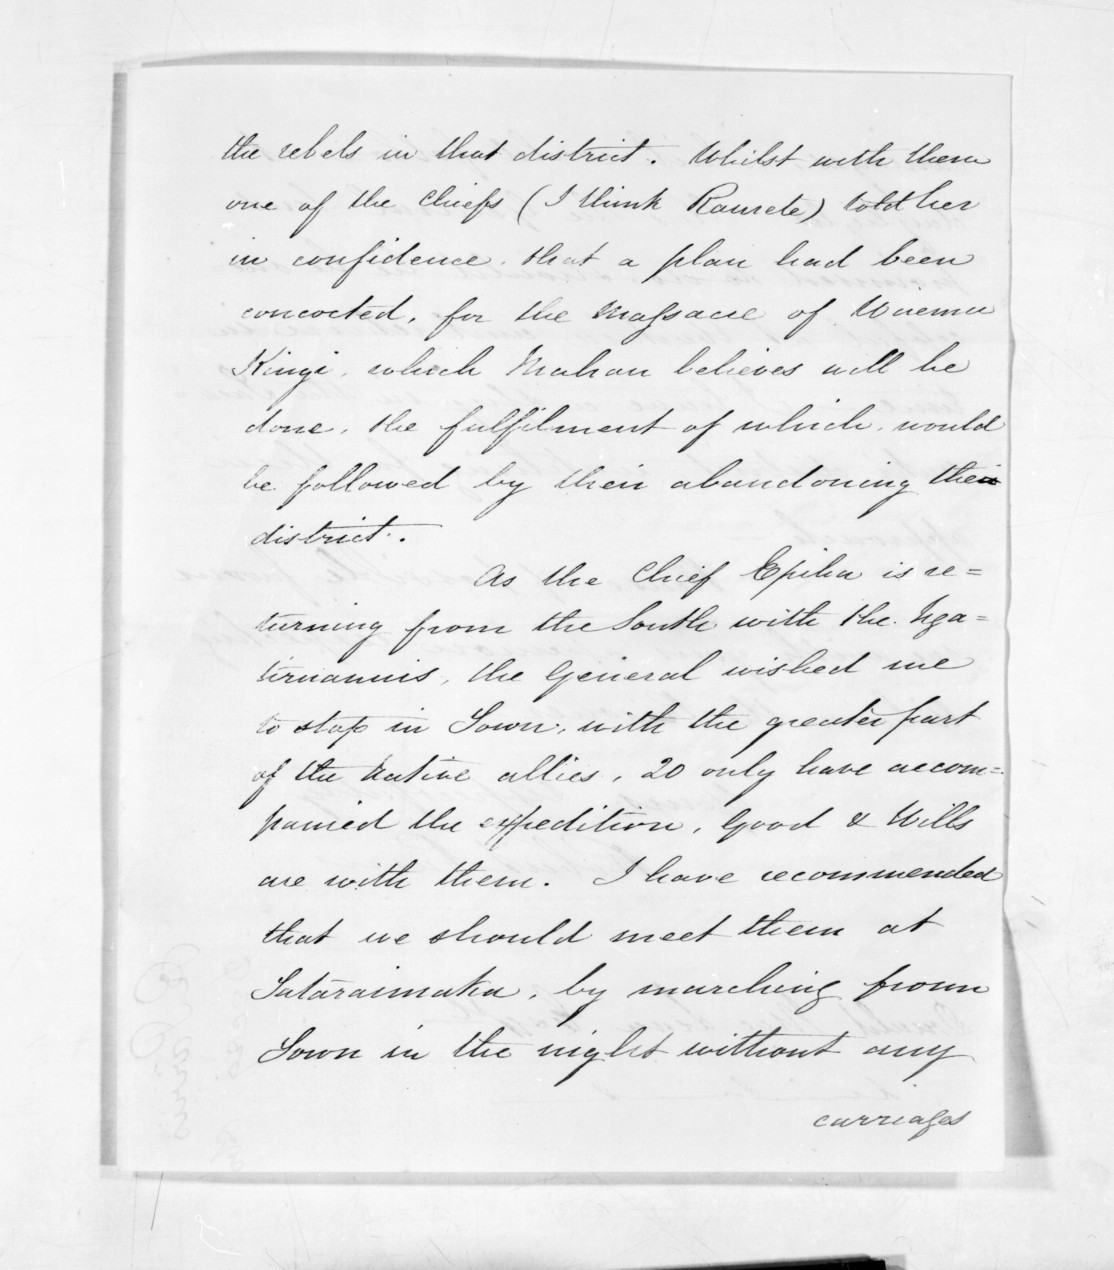 the rebels in that district. Whilst with them
one of the Chiefs (I think Raurete) told her
in confidence, that a plan had been
concocted, for the Massacre of Wiremu
Kingi, which Mahau believes will be
done, the fulfilment of which, would
be followed by their abandoning the
district.
As the Chief Epiha is re=
turning from the South with the Nga=
tiruanuis, the General wished me
to stop in Town, with the greater part
of the Native allies, 20 only have accom=
panied the expedition, Good & Wills
are with them. I have recommended
that we should meet them at
Tataraimaka, by marching from
Town in the night without any
carriages